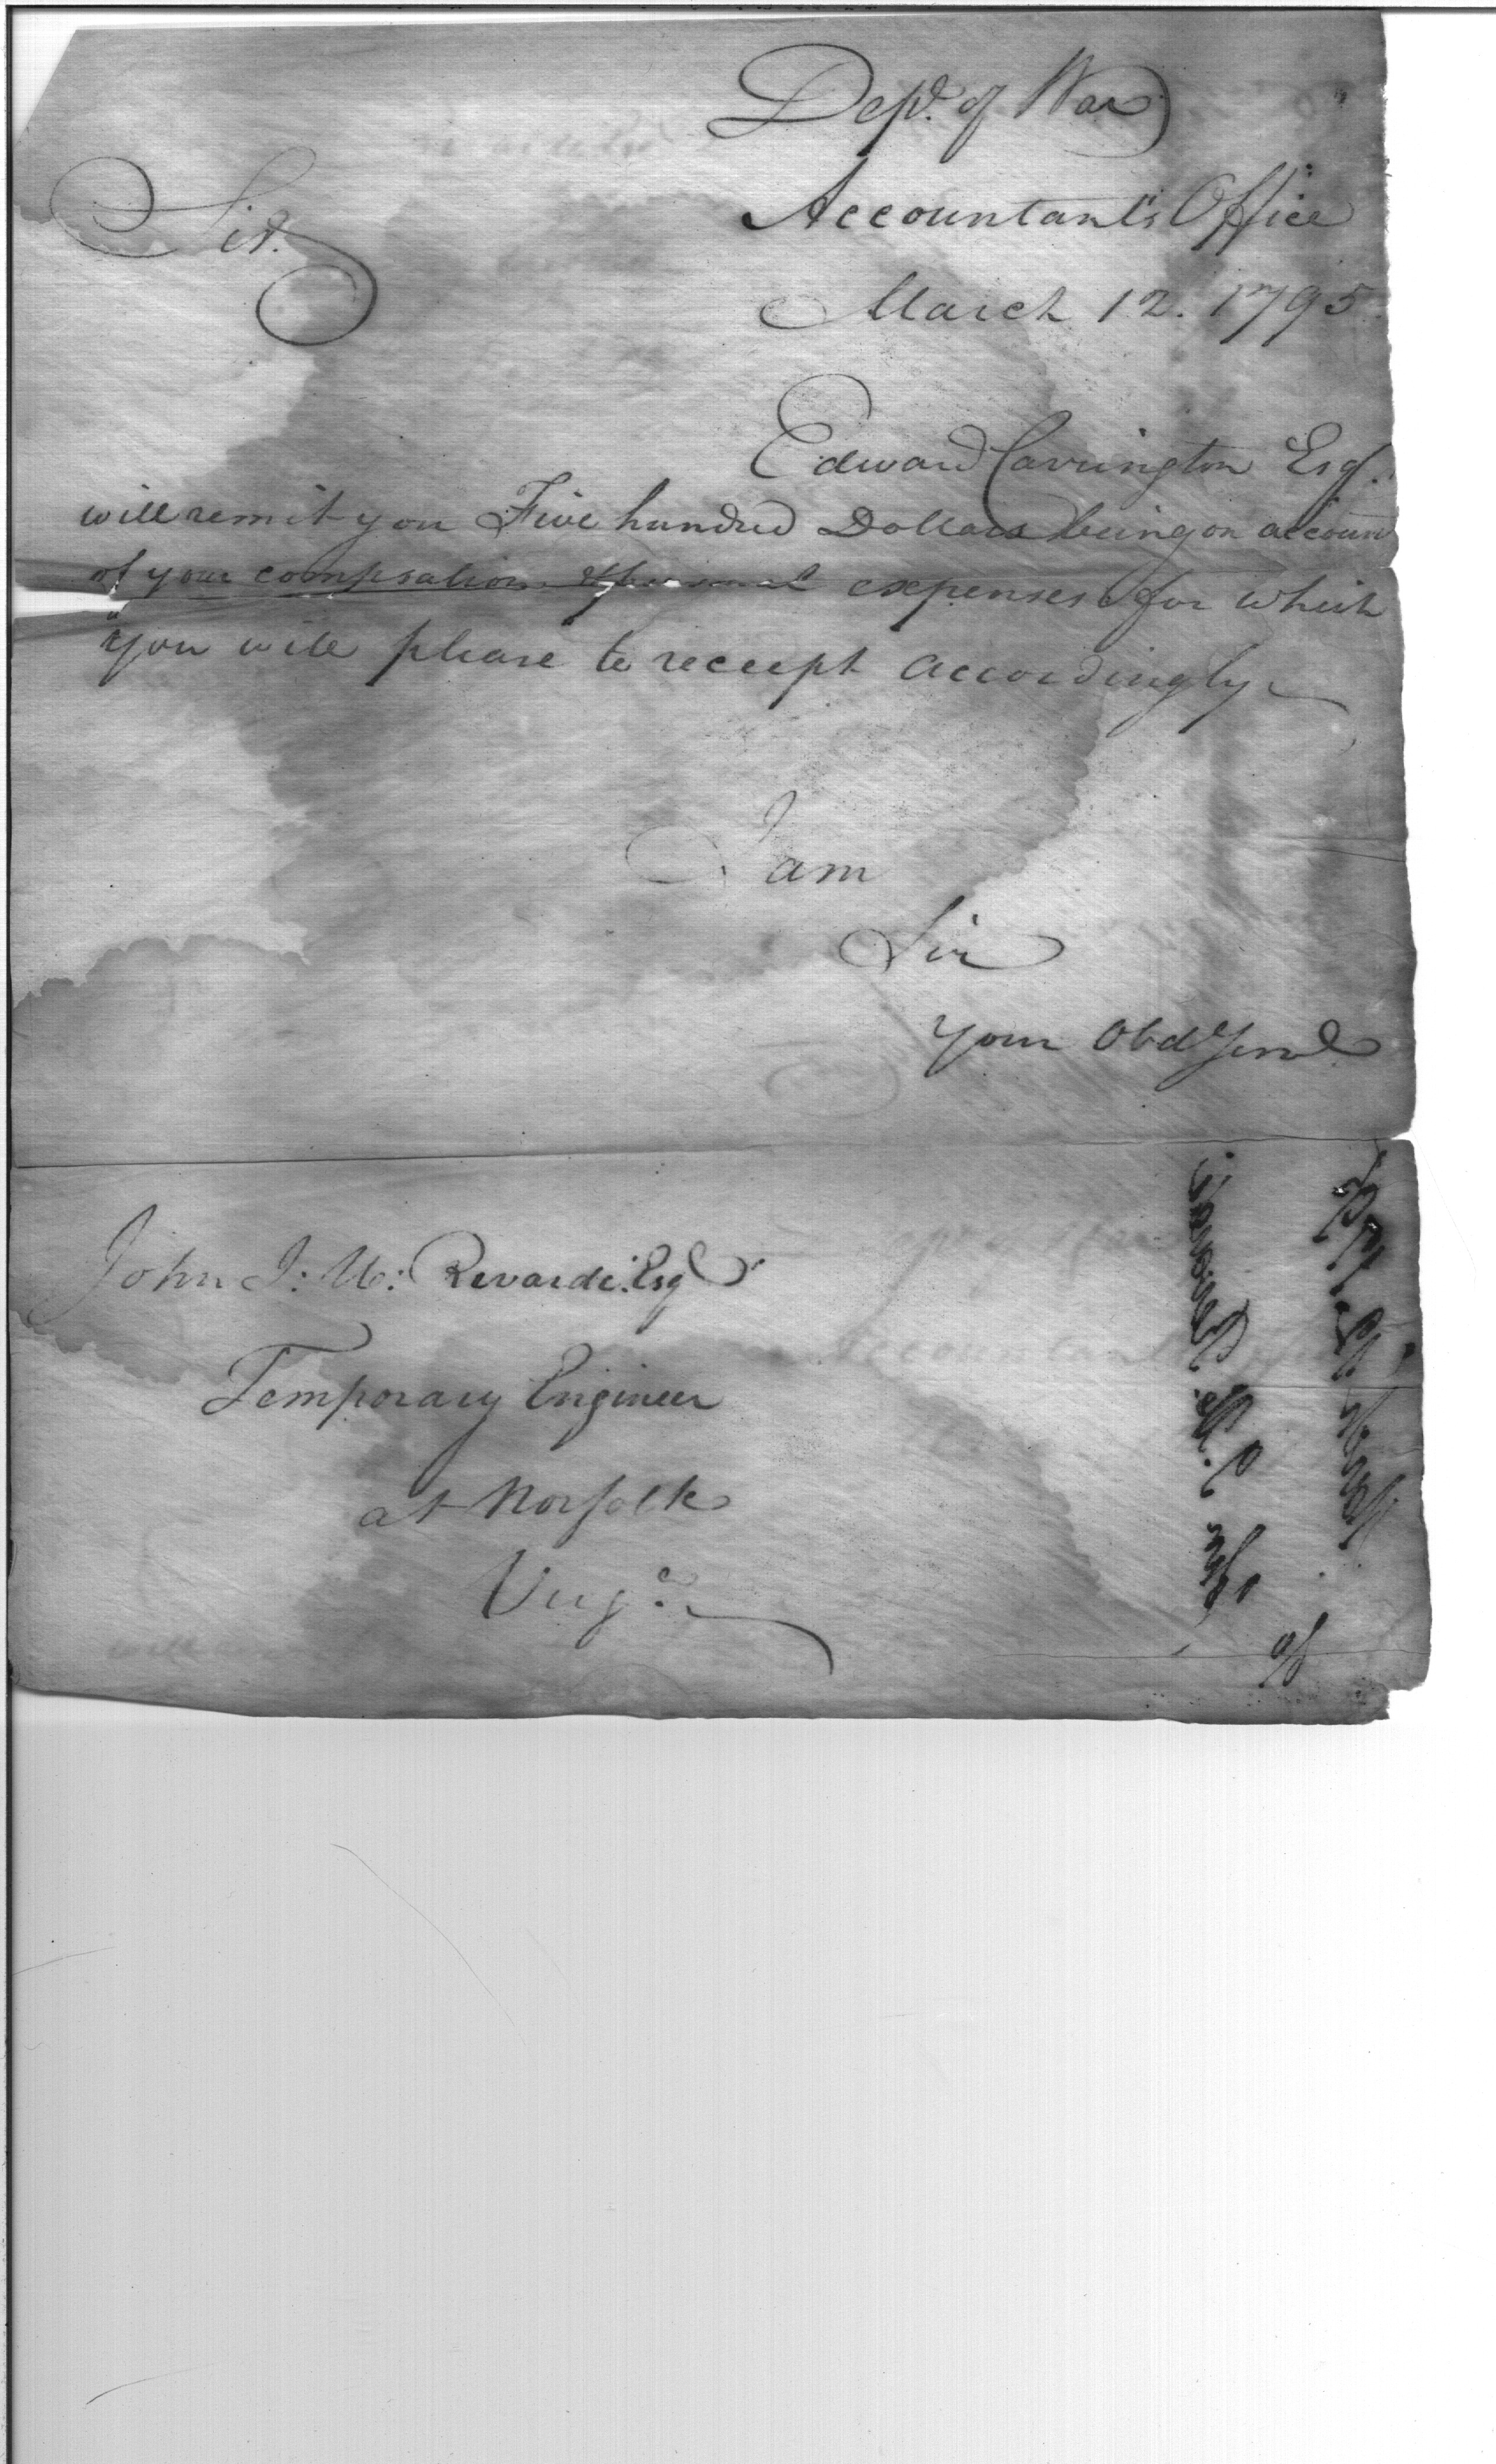 Dept. of War
Accountant's Office
Sir.
March 12. 1795.
Edward Carrington Esqr.
will remit you Five hundred Dollars being on accoun
of your compsation & personal expenses for which
you will please to receept accordingly
I am
Sir
Your Obd Servt
John J: U: Rivardi: Esqr
Temporary Engineer
at Norfolk
Virga.
John J. U. Rivardi
March 12. 1795